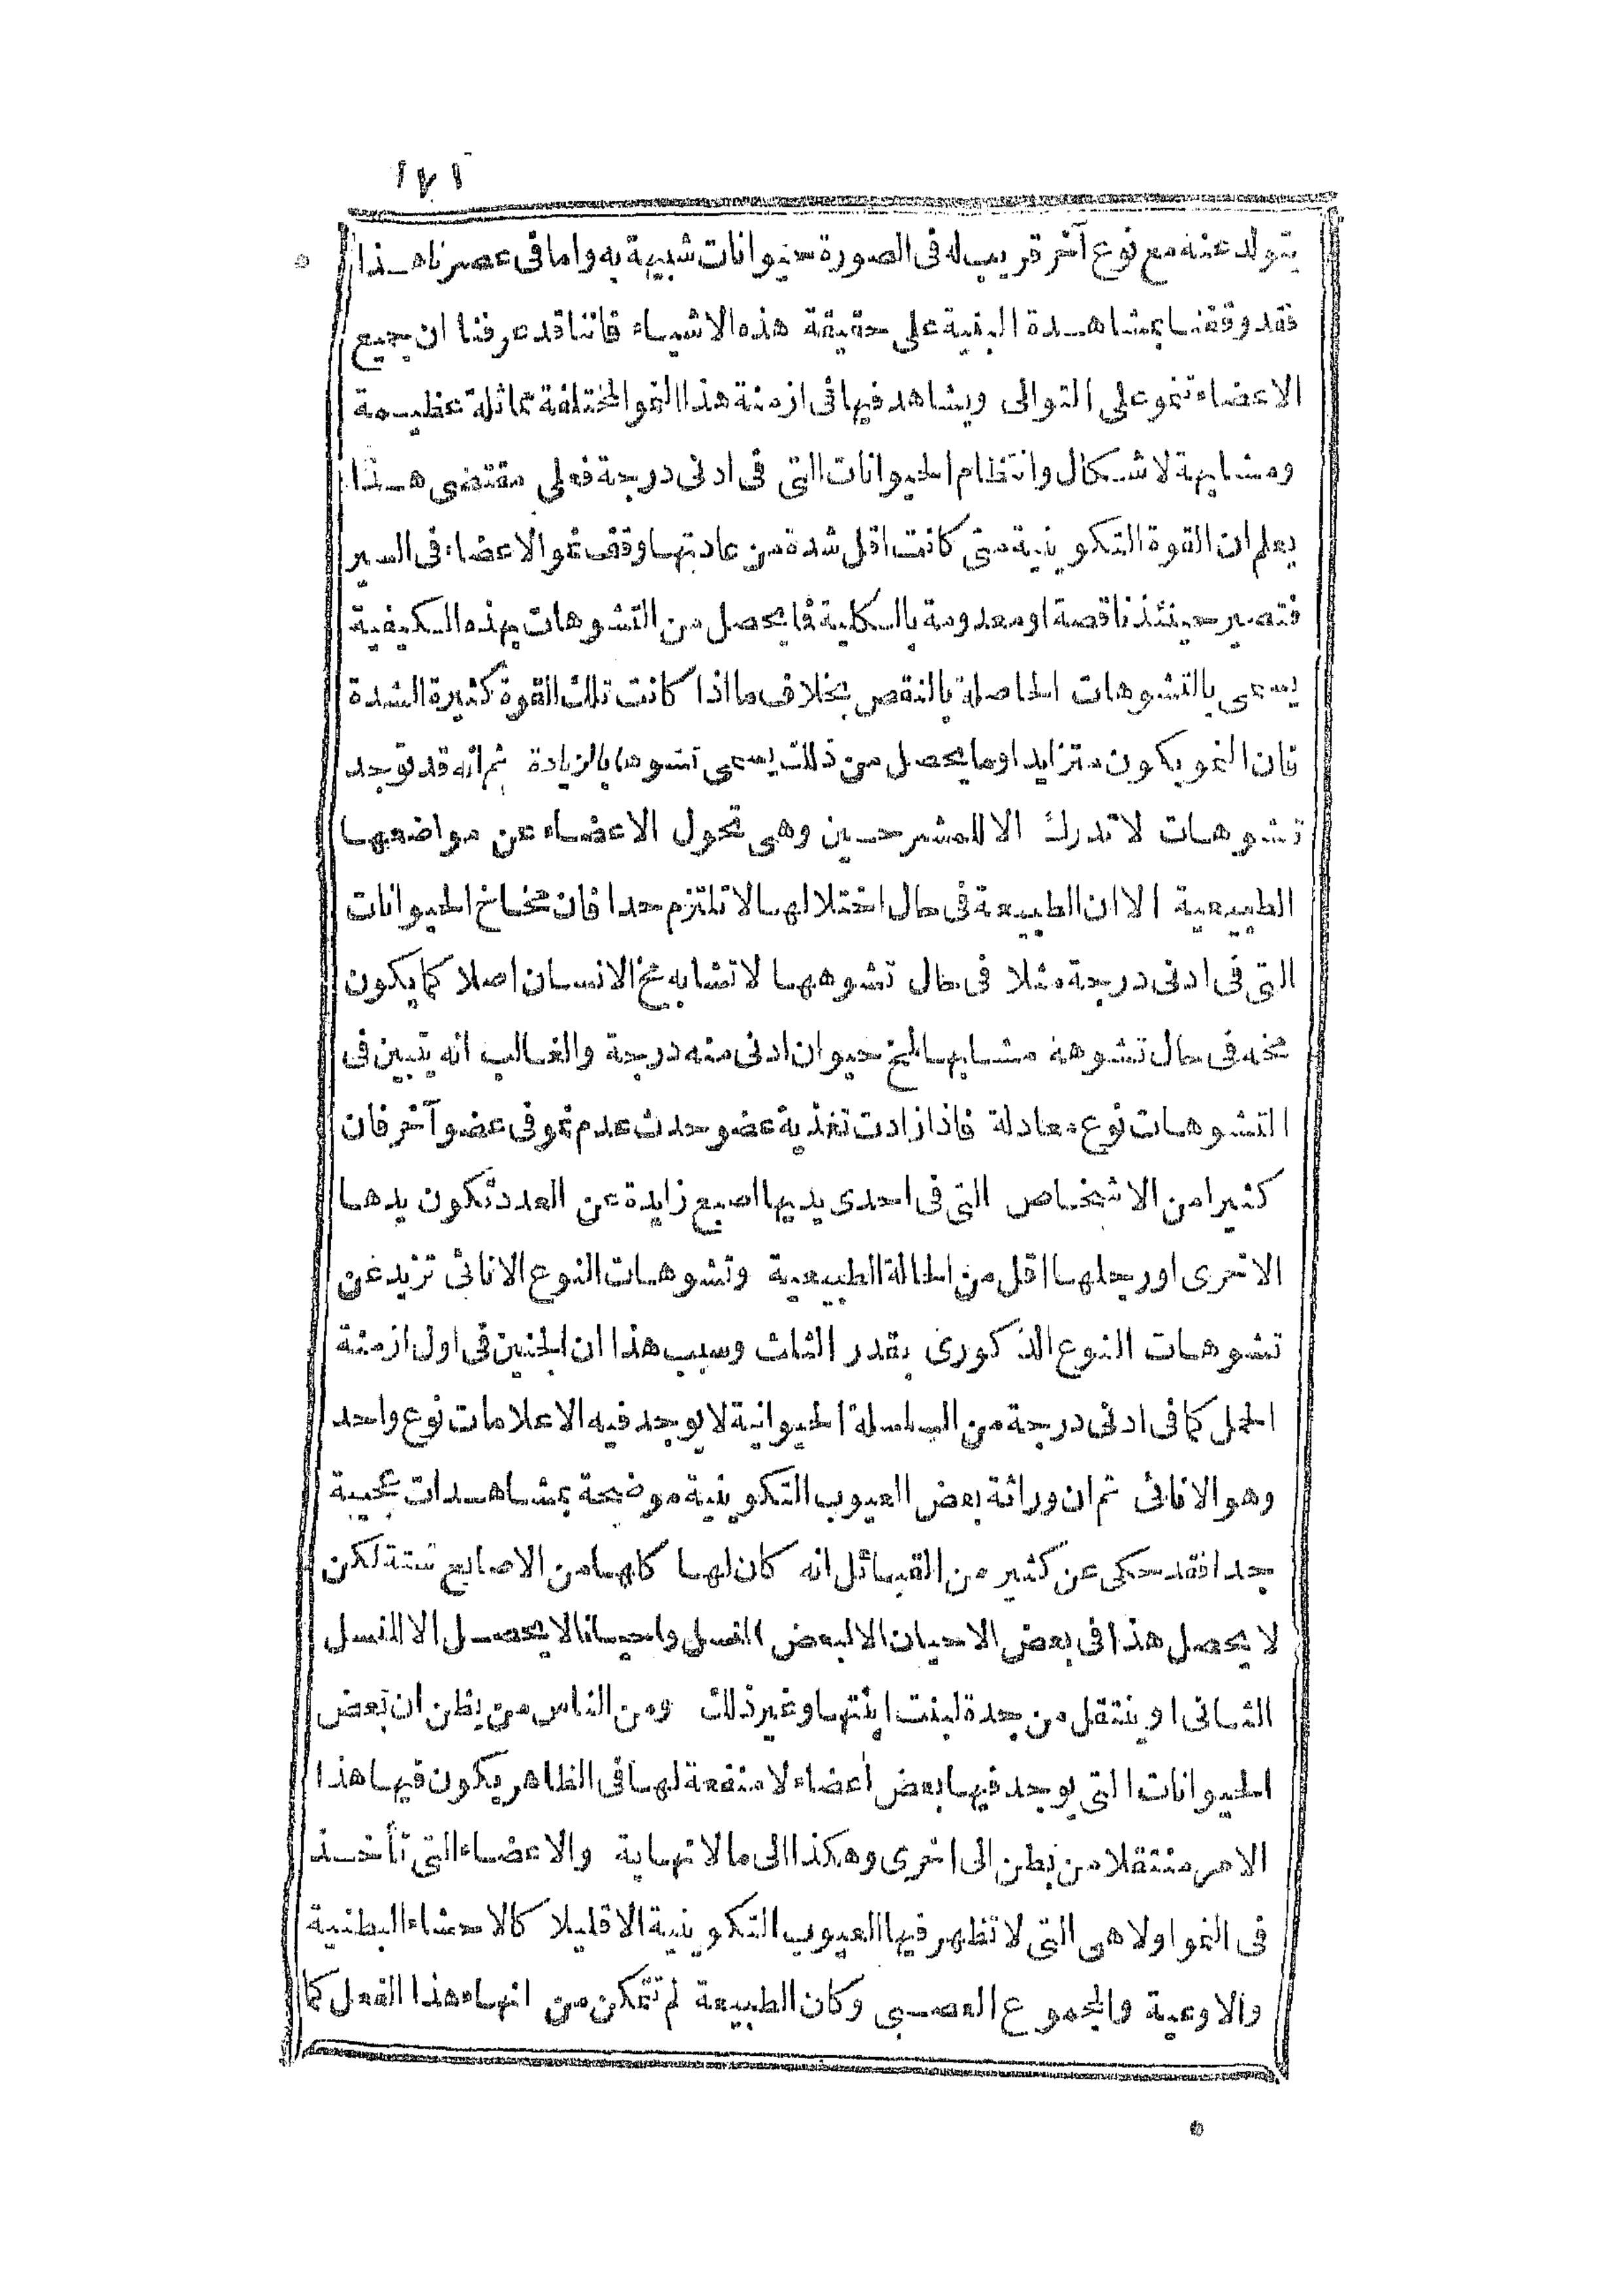 ١٧١
يتولد عنه مع نوع آخر قريب له فى الصورة حيوانات شبيهة به واما فى عصرنا هـذا
فقد وقفنا بمشاهـدة البنية على حقيقة هذه الاشياء فاننا قد عرفنا ان جميع
الاعضاء تنمو على التوالى ويشاهد فيها فى ازمنة هذا النمو المختلفة مماثلة عظيمة
ومشابهة لاشكال وانتظام الحيوانات التى فى ادنى درجة فعلى مقتضى هـذا
يعلم ان القوة التكوينية متى كانت اقل شدة من عادتها وقف نمو الاعضاء فى السير
فتصير حينئذ ناقصة او معدومة بالكلية فما يحصل من التشوهات بهذه الكيفية
يسمى بالتشوهات الحاصلة بالنقص بخلاف ما اذا كانت تلك القوة كثيرة الشدة
فان النمو يكون متزايدا وما يحصل من ذلك يسمى تشوها بالزيادة ثم انه قد توجد
تشوهات لا تدرك الا للمشرحين وهى تحول الاعضاء عن مواضعها
الطبيعية الا ان الطبيعة فى حال اختلالها لا تلتزم حدا فان مخاخ الحيوانات
التى فى ادنى درجة مثلا فى حال تشوهها لا تشابه مخ الانسان اصلا كما يكون
مخه فى حال تشوهه مشابها لمخ حيوان ادنى منه درجة والغالب انه يتبين فى
التشوهات نوع معادلة فاذا زادت تغذية عضو حدث عدم نمو فى عضو آخر فان
كثيرا من الاشخاص التى فى احدى يديها اصبع زايدة عن العدد تكون يدها
الاخرى او رجلها اقل من الحالة الطبيعية وتشوهات النوع الاناثى تزيد عن
تشوهات النوع الذكورى بقدر الثلث وسبب هذا ان الجنين فى اول ازمنة
الحمل كما فى ادنى درجة من السلسلة الحيوانية لا يوجد فيه الا علامات نوع واحد
وهو الاناثى ثم ان وراثة بعض العيوب التكوينية موضحة بمشاهـدات عجيبة
جدا فقد حكى عن كثير من القبائل انه كان لها كلها من الاصابع ستة لكن
لا يحصل هذا فى بعض الاحيان الا لبعض النسل واحيانا لا يحصل الا للنسل
الثانى او ينتقل من جدة لبنت ابنتها وغير ذلك ومن الناس من يظن ان بعض
الحيوانات التى يوجد فيها بعض أعضاء لا منفعة لها فى الظاهر يكون فيها هذا
الامر منتقلا من بطن الى اخرى وهكذا الى ما لا نهاية والاعضاء التى تأخـذ
فى النمو اولا هى التى لا تظهر فيها العيوب التكوينية الا قليلا كالاحشاء البطنية
والاوعية والمجموع العصبى وكان الطبيعة لم تتمكن من انهاء هذا الفعل كما